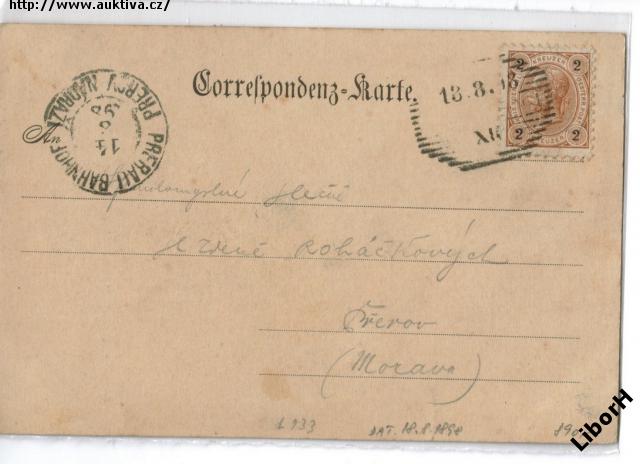 http://www.auktiva.cz/
Correspondenz-Karte.
An
PRERAU BAHNHOF
PŘEROV NÁDRAŽÍ
14
8
98
18.8.98
XII
2 KREUZER 2
2 KREUZER 2
slečně
Zdeně Roháčkových
Přerov
(Morava)
1933
DAT. 18.8.1898
LiborH